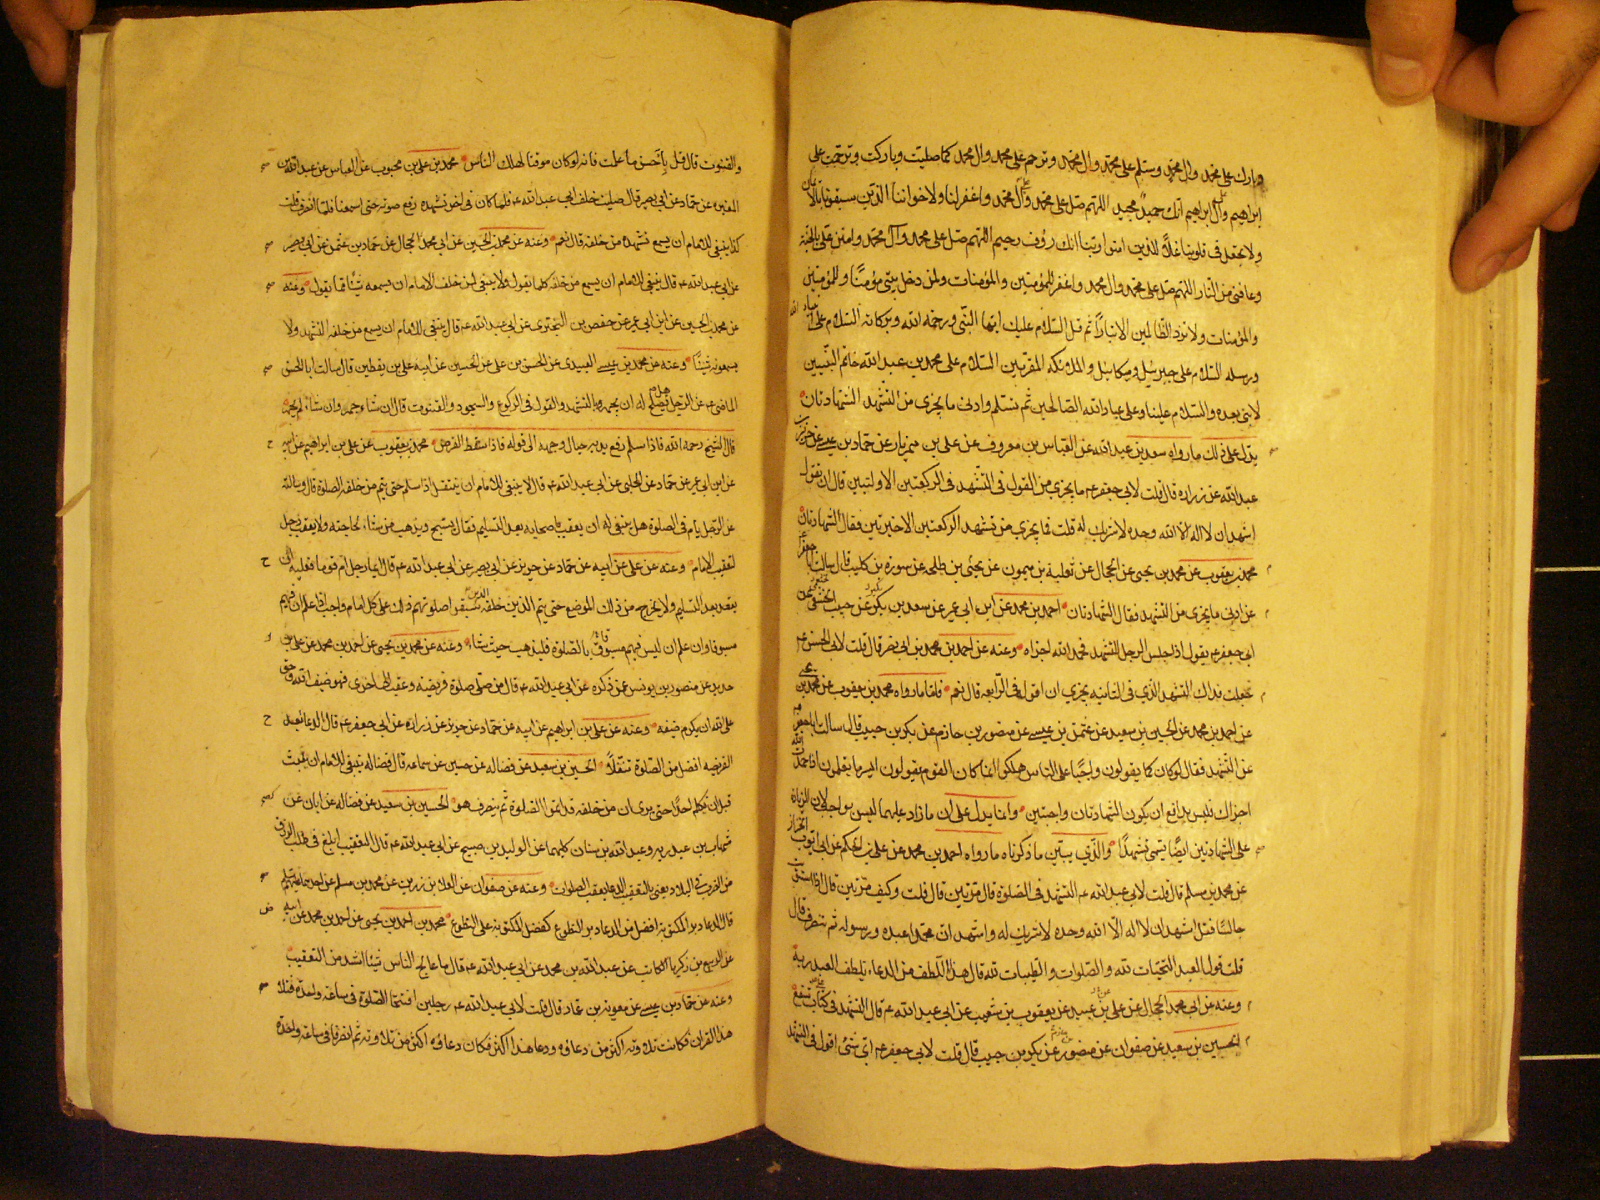 وبارك على محمد وال محمد وسلم على محمد وال محمد وترحم على محمد وال محمد كما صليت وباركت وترحمت على
ابراهيم وآل ابراهيم انك حميد مجيد اللهم صل على محمد وآل محمد واغفر لنا ولاخواننا الذين سبقونا بالايمان
ولا تجعل فى قلوبنا غلاً للذين امنوا ربنا انك رؤف رحيم اللهم صل على محمد وآل محمد وامنن على بالجنة
وعافنى من النار اللهم صل على محمد وال محمد واغفر للمؤمنين والمؤمنات ولمن دخل بيتى مؤمنًا وللمؤمنين
والمؤمنات ولا تزد الظالمين الا تباراً ثم قل السلام عليك ايها النبى ورحمة الله وبركاته السلام على انبياء الله
ورسله السلام على جبرئيل وميكائيل والملائكه المقربين السلام على محمد بن عبد الله خاتم النبيين
لا نبى بعده والسلام علينا وعلى عباد الله الصالحين ثم تسلم وادنى ما يجزى من التشهد الشهادتان
يدل على ذلك ما رواه سعد بن عبد الله عن العباس بن معروف عن على بن مهزيار عن حماد بن عيسى عن حريز بن
عبد الله عن زراره قال قلت لابى جعفر ع ما يجزى من القول فى التشهد فى الركعتين الاولتين قال ان تقول
اشهد ان لا اله الا الله وحده لا شريك له قلت فما يجزى من تشهد الركعتين الاخيرتين فقال الشهادتان
محمد بن يعقوب عن محمد بن يحيى عن الحجال عن ثعلبة بن ميمون عن يحيى بن طلحه عن سورة بن كليب قال سالت ابا جعفر ع
عن ادنى ما يجزى من التشهد فقال الشهادتان احمد بن محمد عن ابن ابى عمير عن سعد بن بكر عن حبيب الخثعمى عن
ابى جعفر ع يقول اذا جلس الرجل للتشهد فحمد الله اجزاه وعنه عن احمد بن محمد بن ابى نصر قال قلت لابى الحسن ع
جعلت فداك التشهد الذى فى الثانيه يجزى ان اقول فى الرابعه قال نعم فاما ما رواه محمد بن يعقوب عن محمد بن يحيى
عن احمد بن محمد عن الحسين بن سعيد عن عثمن بن عيسى عن منصور بن حازم عن بكر بن حبيب قال سالت ابا جعفر ع
عن التشهد فقال لو كان كما يقولون واجبًا على الناس هلكوا انما كان القوم يقولون ايسر ما يعلمون اذا حمدت الله
اجزاك فليس بدافع ان يكون الشهادتان واجبتين وانما يدل على ان ما زاد عليهما ليس بواجب لان الزيادة
على الشهادتين ايضًا يسمى تشهدًا والذي يبين ما ذكرناه ما رواه احمد بن محمد عن على بن الحكم عن ابى ايوب الخزاز
عن محمد بن مسلم قال قلت لابى عبد الله ع التشهد فى الصلوة قال مرتين قال قلت وكيف مرتين قال اذا استويت
جالسًا فقل اشهد ان لا اله الا الله وحده لا شريك له واشهد ان محمدا عبده ورسوله ثم تنصرف قال
قلت قول العبد التحيات لله والصلوات والطيبات لله قال هذا اللطف من الدعاء يلطف العبد ربه
وعنه عن ابى محمد الحجال عن على بن عبيد عن يعقوب بن شعيب عن ابى عبد الله ع قال التشهد فى كتاب على شفع
الحسين بن سعيد عن صفوان عن منصور عن بكر بن حبيب قال قلت لابى جعفر ع اى شئ اقول فى التشهد
والقنوت قال قل باحسن ما علمت فانه لو كان موقتا لهلك الناس محمد بن على بن محبوب عن العباس عن عبد الله بن
المغيره عن حماد عن ابى بصير قال صليت خلف ابى عبد الله ع فلما كان فى اخر تشهده رفع صوته حتى اسمعنا فلما انصرف قلت
كذا ينبغى للامام ان يسمع تشهده من خلفه قال نعم وعنه عن محمد بن الحسين عن ابى محمد الحجال عن حماد بن عثمن عن ابى بصير
عن ابى عبد الله ع قال ينبغى للامام ان يسمع من خلفه كلما يقول ولا ينبغى لمن خلف الامام ان يسمعه شيئًا مما يقول وعنه
عن محمد بن الحسين عن ابن ابى عمير عن حفص بن البخترى عن ابى عبد الله ع قال ينبغى للامام ان يسمع من خلفه التشهد ولا
يسمعونه شيئًا وعنه عن محمد بن عيسى العبيدى عن الحسن بن على عن الحسين عن ابيه على بن يقطين قال سالت ابا الحسن
الماضى ع عن الرجل يصلح له ان يجهر بالتشهد والقول فى الركوع والسجود والقنوت قال ان شاء جهر وان شاء لم يجهر
قال الشيخ رحمه الله فاذا سلم رفع يديه حيال وجهه الى قوله فاذا سقط القرض محمد بن يعقوب عن على بن ابراهيم عن ابيه
عن ابن ابى عمير عن حماد عن الحلبى عن ابى عبد الله ع قال لا ينبغى للامام ان ينتقل اذا سلم حتى يتم من خلفه الصلوة قال وسالته
عن الرجل يام فى الصلوة هل ينبغى له ان يعقب باصحابه بعد التسليم فقال يسبح ويذهب من شاء لحاجته ولا يعقب رجل
لتعقيب الامام وعنه عن على عن ابيه عن حماد عن حريز عن ابى بصير عن ابى عبد الله ع قال ايما رجل ام قوما فعليه ان
يقعد بعد التسليم ولا يخرج من ذلك الموضع حتى يتم الذين خلفه الذين سبقوا صلوتهم ذلك على كل امام واجب اذا علم ان فيهم
مسبوقا وان علم ان ليس فيهم مسبوق بالصلوة فليذهب حيث شاء وعنه عن محمد بن يحيى عن احمد بن محمد عن على بن
حديد عن منصور بن يونس عن ذكره عن ابى عبد الله ع قال من صلى صلوة فريضه وعقب الى اخرى فهو ضيف الله وحق
على الله ان يكرم ضيفه وعنه عن على بن ابراهيم عن ابيه عن حماد عن حريز عن زراره عن ابى جعفر ع قال الدعاء بعد
الفريضه افضل من الصلوة تنفلاً الحسين بن سعيد عن فضاله عن حسين عن سماعه قال ينبغى للامام ان يلبث
قبل ان يكلم احدًا حتى يرى ان من خلفه قد اتموا الصلوة ثم ينصرف هو الحسين بن سعيد عن فضاله عن ابان عن
شهاب بن عبد ربه وعبد الله بن سنان كليهما عن الوليد بن صبيح عن ابى عبد الله ع قال التعقيب ابلغ فى طلب الرزق
من الضرب فى البلاد يعنى بالتعقيب الدعاء بعقب الصلوات وعنه عن صفوان عن العلاء بن رزين عن محمد بن مسلم عن احدهما ع
قال الدعاء دبر المكتوبة افضل من الدعاء دبر التطوع كفضل المكتوبة على التطوع محمد بن احمد بن يحيى عن احمد بن محمد عن ابيه
عن الربيع بن زكريا الكاتب عن عبد الله بن محمد عن ابى عبد الله ع قال ما عالج الناس شيئا اشد من التعقيب
وعنه عن حماد بن عيسى عن معوية بن عمار قال قلت لابى عبد الله ع رجلين افتتحا الصلوة فى ساعة واحدة فتلا
هذا القرآن فكانت تلاوته اكثر من دعاؤه ودعا هذا اكثر فكان دعاؤه اكثر من تلاوته ثم انصرفا فى ساعة واحدة